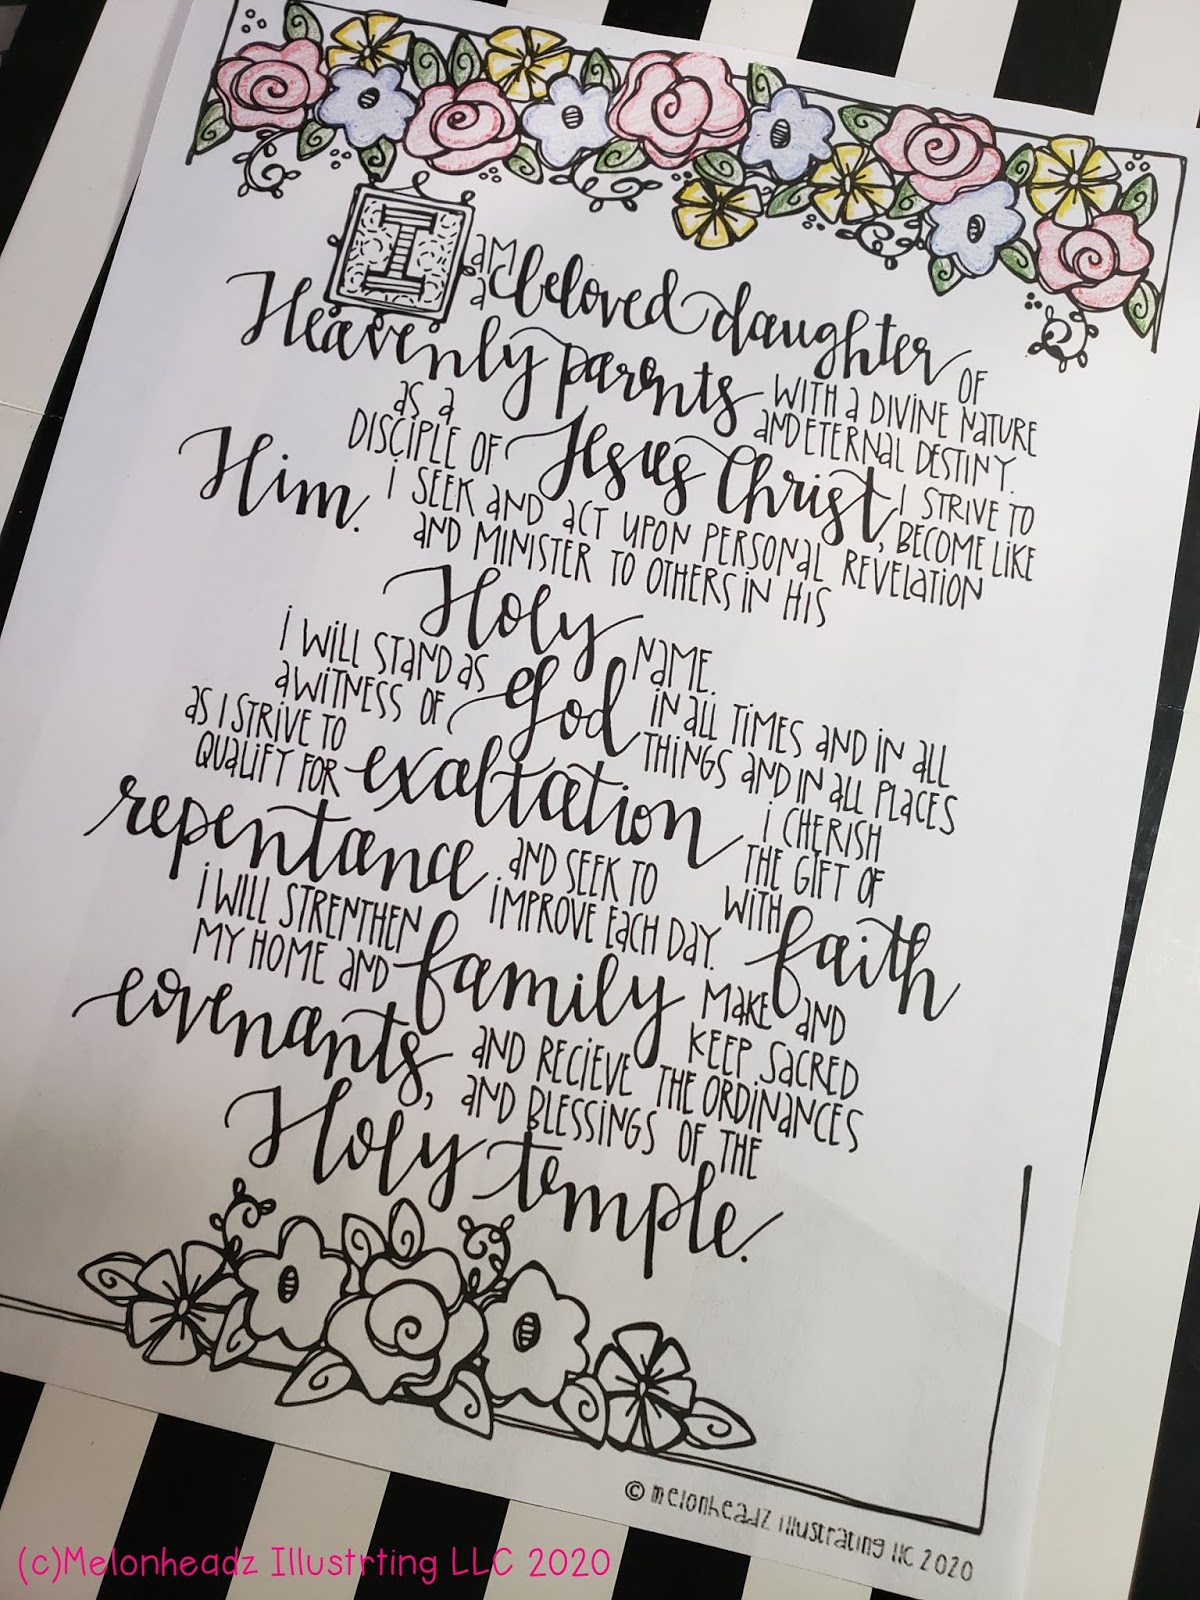 I am a beloved daughter of
Heavenly parents with a divine nature
and eternal destiny.
as a
disciple of Jesus Christ, I strive to
become like
Him. I seek and act upon personal revelation
and minister to others in His
Holy name.
I will stand as
a witness of God in all times and in all
things and in all places
as I strive to
qualify for exaltation I cherish
the gift of
repentance and seek to
improve each day. with faith
I will strenthen
my home and family make and
keep sacred
covenants, and recieve the ordinances
and blessings of the
Holy temple.
© melonheadz illustrating llc 2020
(c)Melonheadz Illustrting LLC 2020